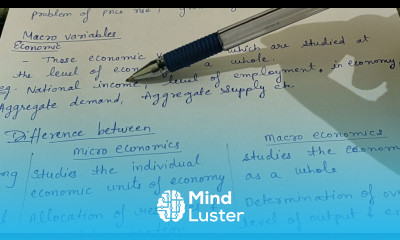 problem of price rise,
Macro variables
Economic
- Those economic which are studied at
the level of economy as a whole.
eg. National income, level of employment, in economy,
Aggregate demand, Aggregate supply etc.
Difference between
Micro economics
Macro economics
Studies the individual
economic units of economy
studies the
as a whole
Allocation of
Determination of
level of output &
Mind
Luster